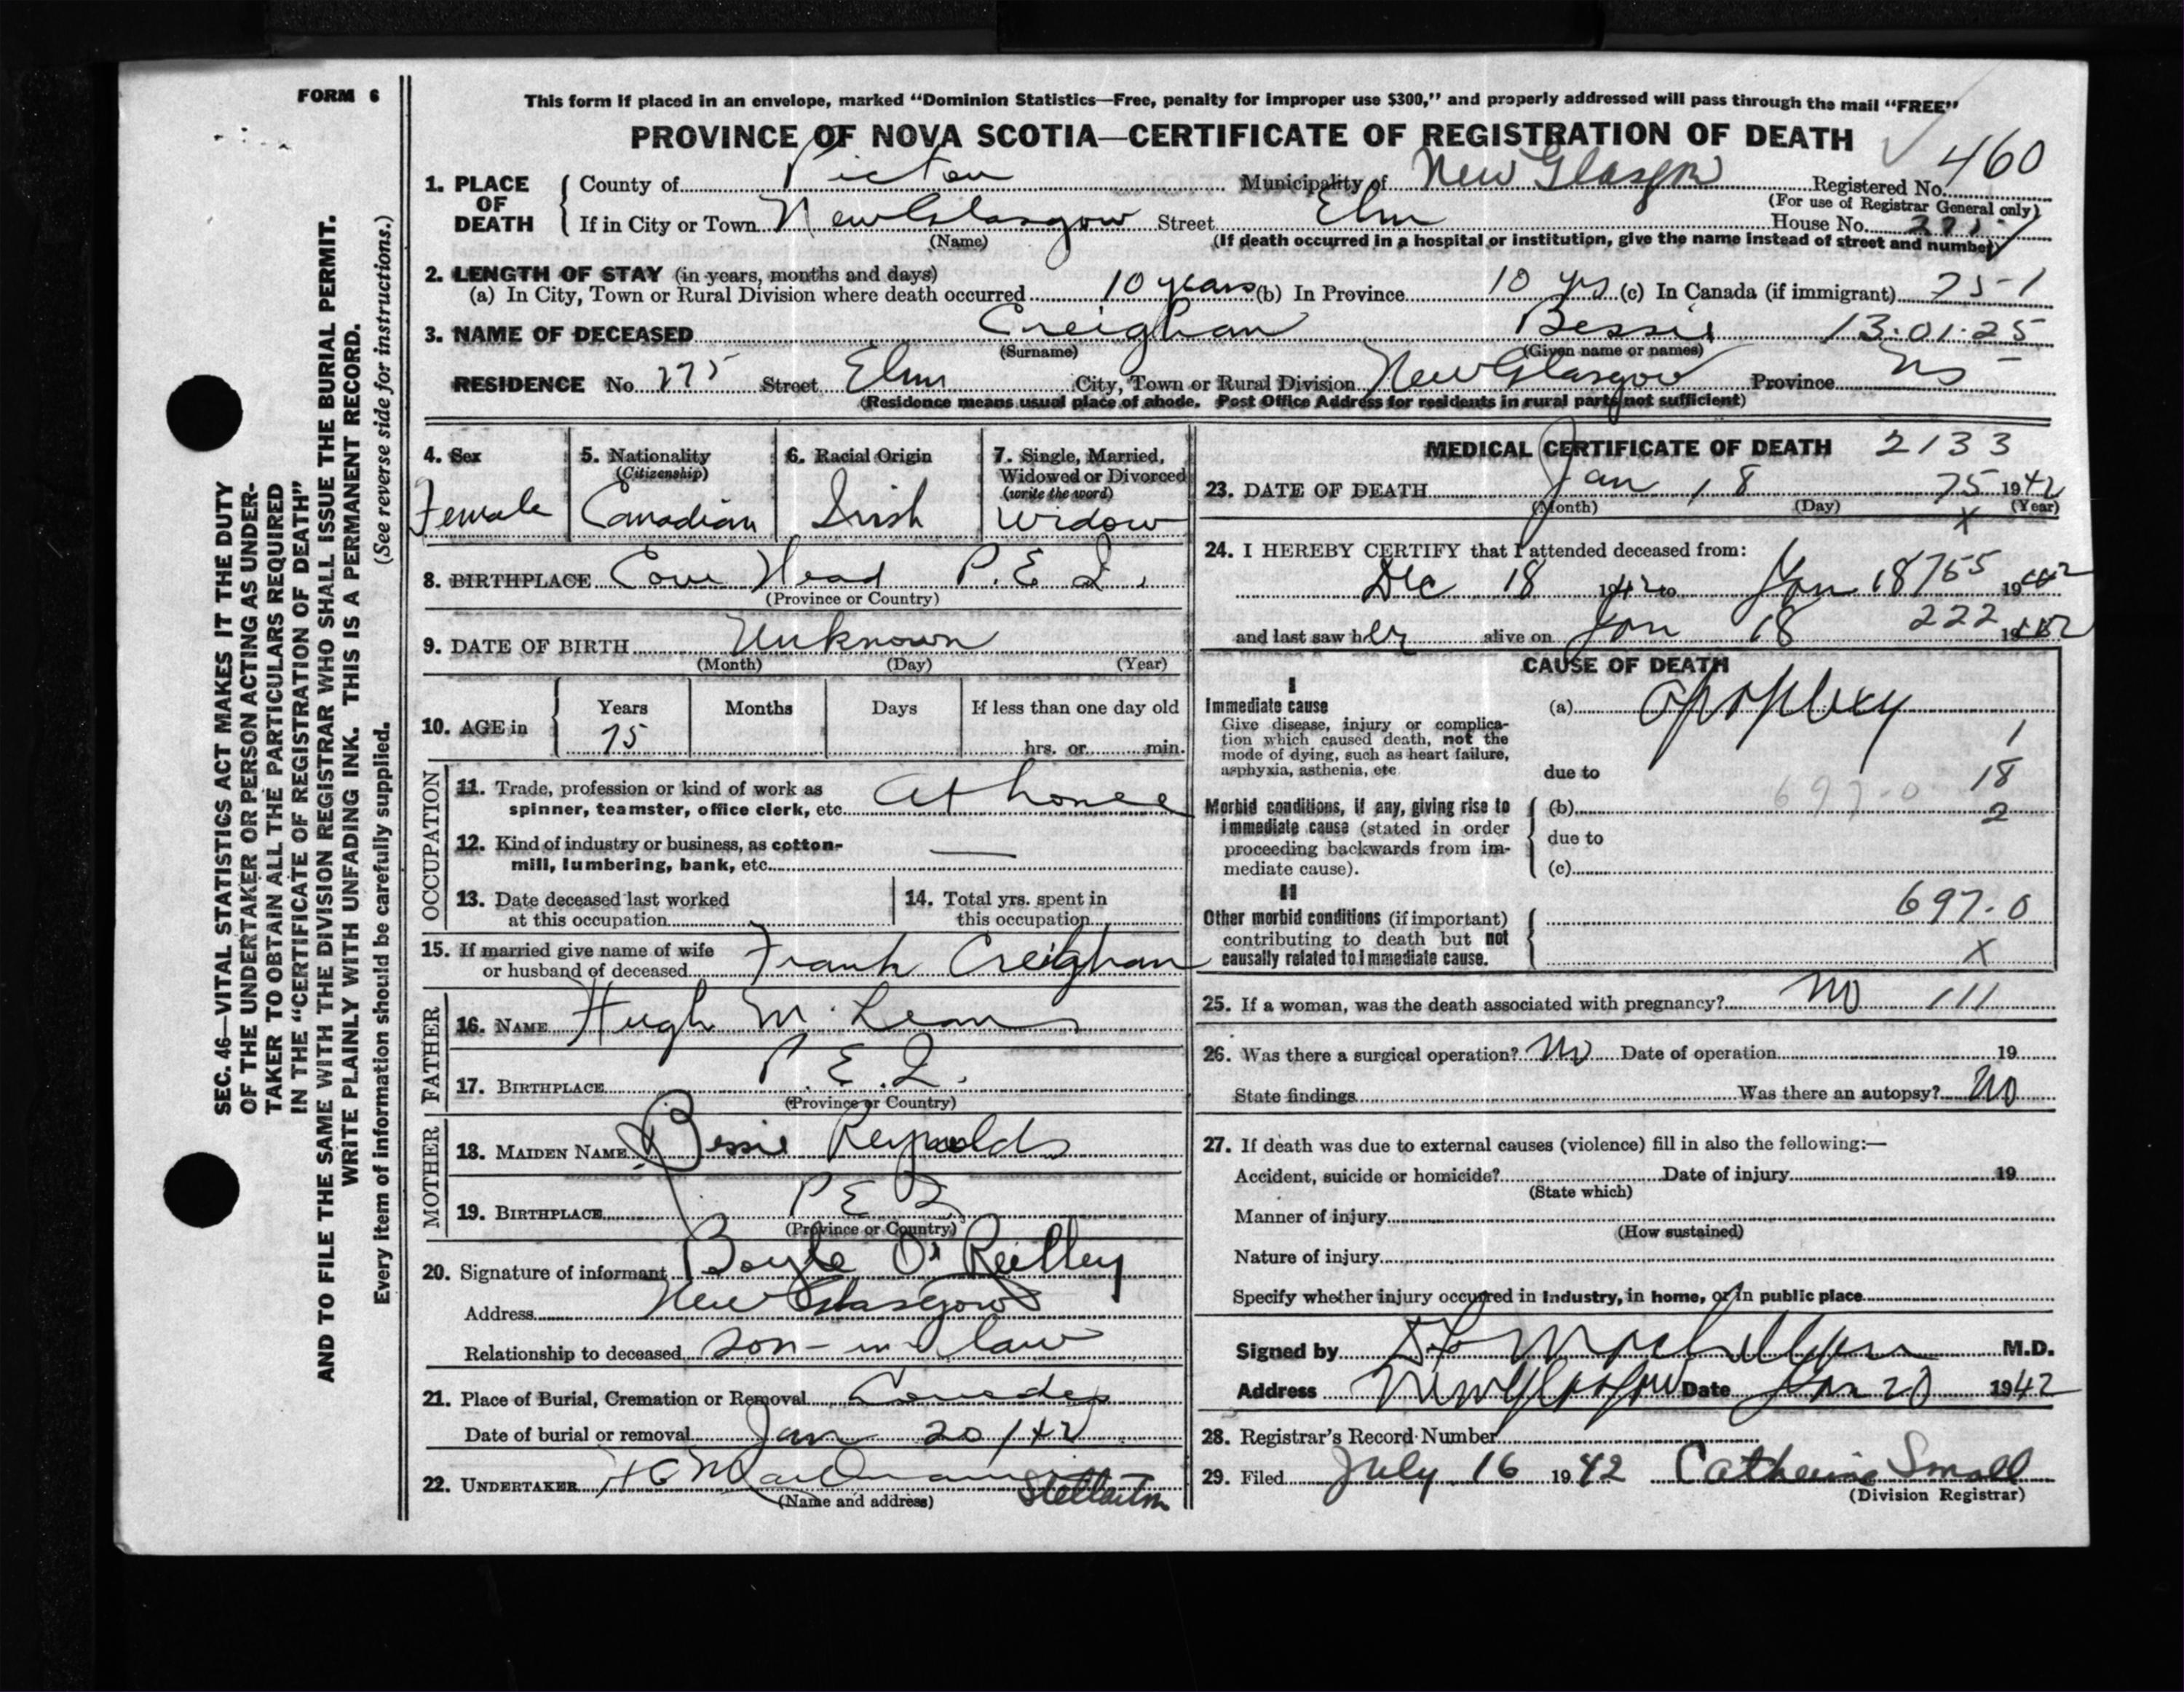 FORM 6
This form if placed in an envelope, marked “Dominion Statistics—Free, penalty for improper use $300,” and properly addressed will pass through the mail “FREE”
PROVINCE OF NOVA SCOTIA—CERTIFICATE OF REGISTRATION OF DEATH
460
1. PLACE OF DEATH
County of Pictou Municipality of New Glasgow Registered No.
(For use of Registrar General only)
If in City or Town New Glasgow Street Elm House No.
(Name) (If death occurred in a hospital or institution, give the name instead of street and number)
2. LENGTH OF STAY (in years, months and days)
(a) In City, Town or Rural Division where death occurred 10 years (b) In Province 10 yrs (c) In Canada (if immigrant) 75-1
3. NAME OF DECEASED Creighan Bessie 13.01.25
(Surname) (Given name or names)
RESIDENCE No. 275 Street Elm City, Town or Rural Division New Glasgow Province NS
(Residence means usual place of abode. Post Office Address for residents in rural parts not sufficient)
4. Sex
Female
5. Nationality
(Citizenship)
Canadian
6. Racial Origin
Irish
7. Single, Married,
Widowed or Divorced
(write the word)
Widow
8. BIRTHPLACE Cove Head P.E.I.
(Province or Country)
9. DATE OF BIRTH Unknown
(Month) (Day) (Year)
10. AGE in
Years Months Days If less than one day old
75 hrs. or min.
OCCUPATION
11. Trade, profession or kind of work as
spinner, teamster, office clerk, etc. at home
12. Kind of industry or business, as cotton-
mill, lumbering, bank, etc. —
13. Date deceased last worked
at this occupation
14. Total yrs. spent in
this occupation
15. If married give name of wife
or husband of deceased Frank Creighan
FATHER
16. NAME Hugh McLean
17. BIRTHPLACE P.E.I.
(Province or Country)
MOTHER
18. MAIDEN NAME Bessie Reynolds
19. BIRTHPLACE P E I
(Province or Country)
20. Signature of informant Boyle O'Reilley
Address New Glasgow
Relationship to deceased son-in-law
21. Place of Burial, Cremation or Removal
Date of burial or removal Jan 20/42
22. UNDERTAKER Stellarton
(Name and address)
MEDICAL CERTIFICATE OF DEATH 2133
23. DATE OF DEATH Jan 18 75 1942
(Month) (Day) (Year)
X
24. I HEREBY CERTIFY that I attended deceased from:
Dec 18 1942 to Jan 18 765 1942
and last saw her alive on Jan 18 222 1942
CAUSE OF DEATH
I
Immediate cause
Give disease, injury or complica-
tion which caused death, not the
mode of dying, such as heart failure,
asphyxia, asthenia, etc.
(a) Apoplexy
1
due to
18
Morbid conditions, if any, giving rise to
immediate cause (stated in order
proceeding backwards from im-
mediate cause).
(b) 697-0
2
due to
(c)
II
Other morbid conditions (if important)
contributing to death but not
causally related to immediate cause.
697-0
X
25. If a woman, was the death associated with pregnancy? No 111
26. Was there a surgical operation? No Date of operation 19
State findings Was there an autopsy? No
27. If death was due to external causes (violence) fill in also the following:—
Accident, suicide or homicide? Date of injury 19
(State which)
Manner of injury
(How sustained)
Nature of injury
Specify whether injury occurred in industry, in home, or in public place
Signed by M.D.
Address New Glasgow Date Jan 20 1942
28. Registrar's Record Number
29. Filed July 16 1942 Catherine Small
(Division Registrar)
SEC. 46—VITAL STATISTICS ACT MAKES IT THE DUTY
OF THE UNDERTAKER OR PERSON ACTING AS UNDER-
TAKER TO OBTAIN ALL THE PARTICULARS REQUIRED
IN THE “CERTIFICATE OF REGISTRATION OF DEATH”
AND TO FILE THE SAME WITH THE DIVISION REGISTRAR WHO SHALL ISSUE THE BURIAL PERMIT.
WRITE PLAINLY WITH UNFADING INK. THIS IS A PERMANENT RECORD.
Every item of information should be carefully supplied. (See reverse side for instructions.)